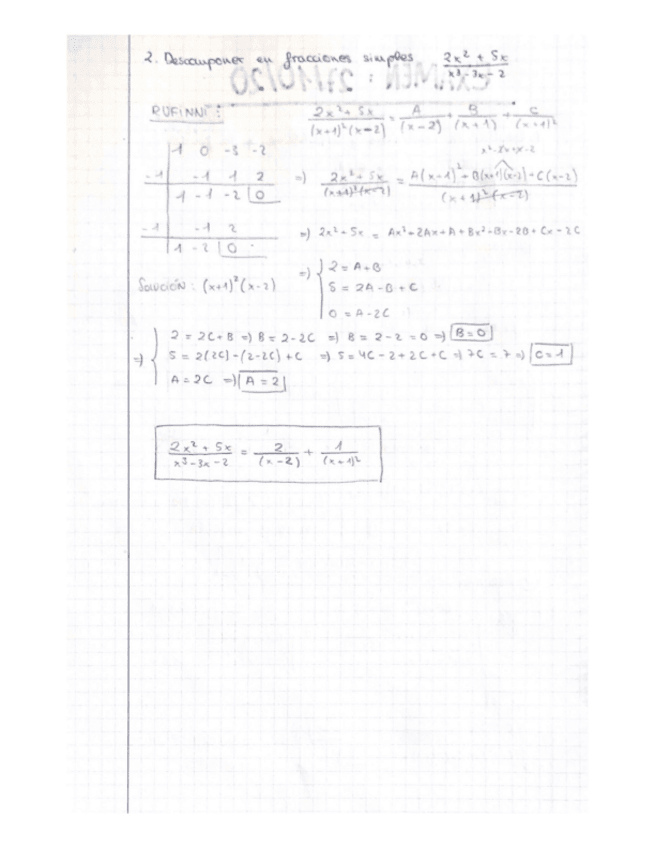 2. Descomponer en fracciones simples (2x² + 5x)/(x³ - 3x - 2)
EXAMEN : 27/10/20
RUFINNI : (2x² + 5x)/((x+1)²(x-2)) = A/(x-2) + B/(x+1) + C/(x+1)²
1 0 -3 -2
-1 -1 1 2
1 -1 -2 0
=> (2x² + 5x)/((x+1)²(x-2)) = (A(x-1)² + B(x+1)(x-2) + C(x-2))/((x+1)²(x-2))
-1 -1 2
1 -2 0
=> 2x² + 5x = Ax² + 2Ax + A + Bx² - Bx - 2B + Cx - 2C
Solución : (x+1)²(x-2)
=> { 2 = A+B
5 = 2A - B + C
0 = A - 2C
=> { 2 = 2C + B => B = 2-2C => B = 2-2 = 0 => B=0
5 = 2(2C) - (2-2C) + C => 5 = 4C - 2 + 2C + C => 7C = 7 => C=1
A = 2C => A=2
(2x² + 5x)/(x³ - 3x - 2) = 2/(x-2) + 1/(x+1)²